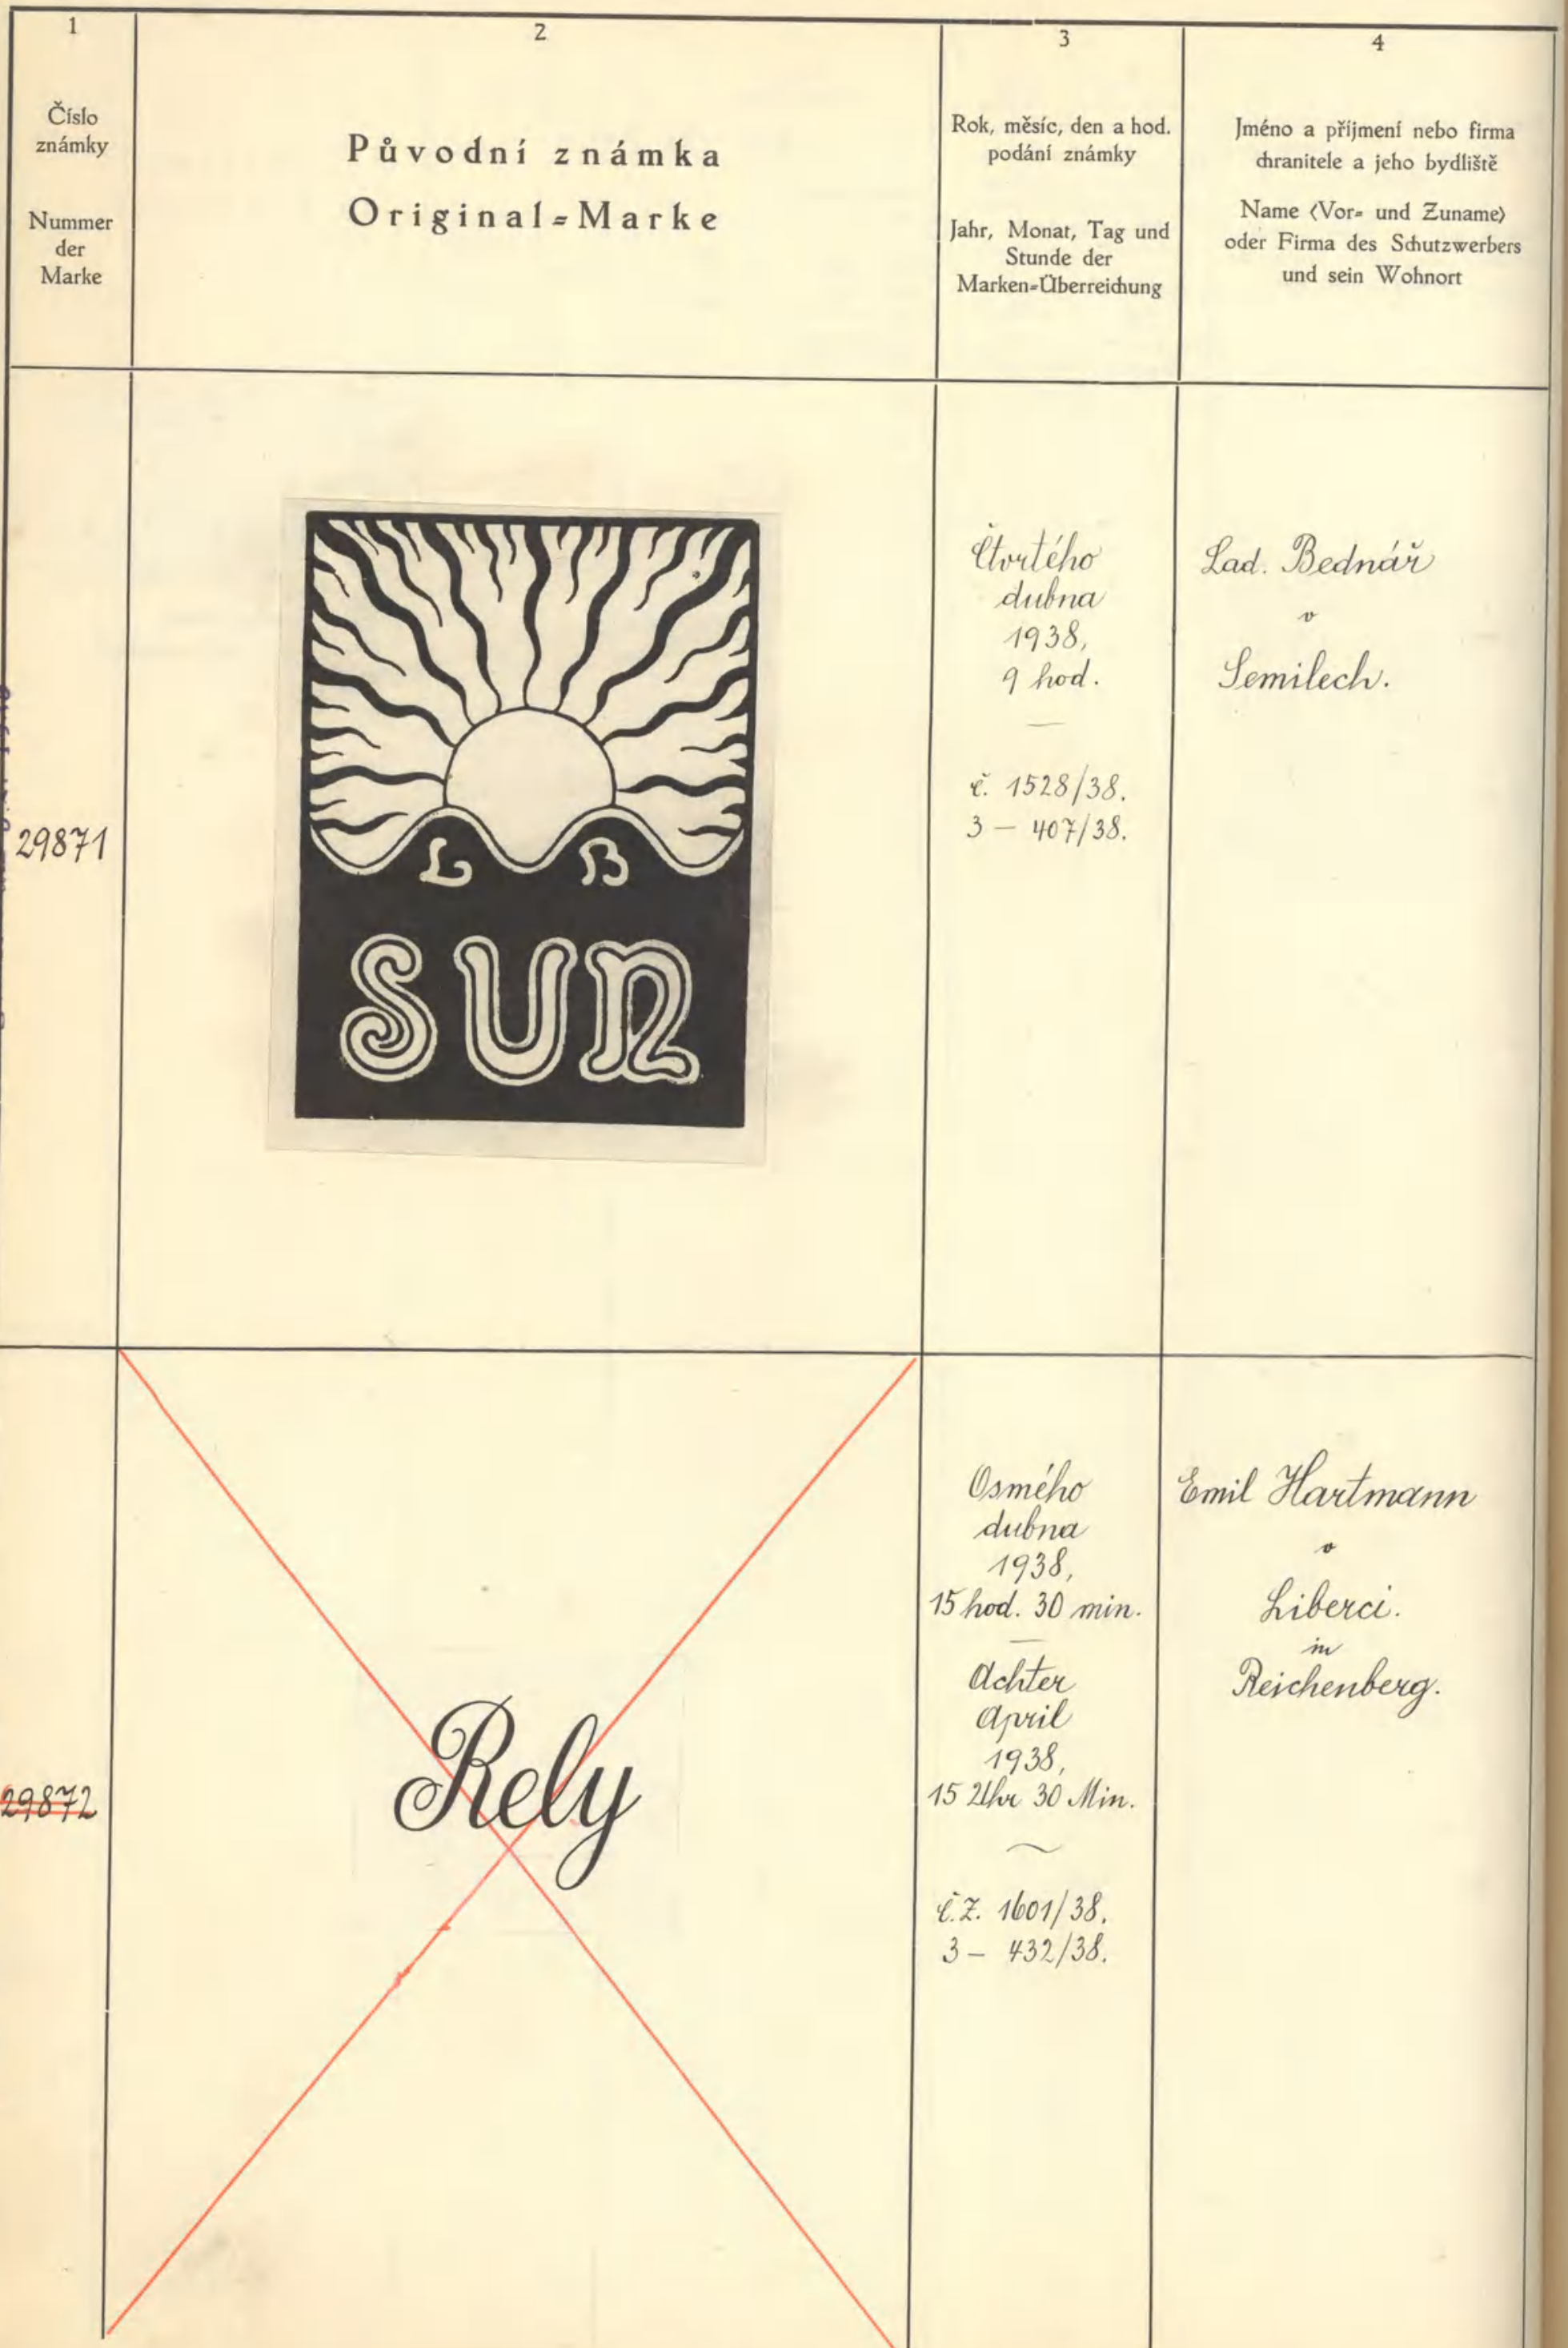 1
Číslo
známky
Nummer
der
Marke
2
Původní známka
Original=Marke
3
Rok, měsíc, den a hod.
podání známky
Jahr, Monat, Tag und
Stunde der
Marken=Überreichung
4
Jméno a příjmení nebo firma
chranitele a jeho bydliště
Name (Vor= und Zuname)
oder Firma des Schutzwerbers
und sein Wohnort
29871
L B
SUN
Čtvrtého
dubna
1938,
9 hod.
č. 1528/38.
3 — 407/38.
Lad. Bednář
v
Semilech.
29872
Rely
Osmého
dubna
1938,
15 hod. 30 min.
Achter
April
1938,
15 Uhr 30 Min.
č.Z. 1601/38.
3 — 432/38.
Emil Hartmann
v
Liberci.
in
Reichenberg.